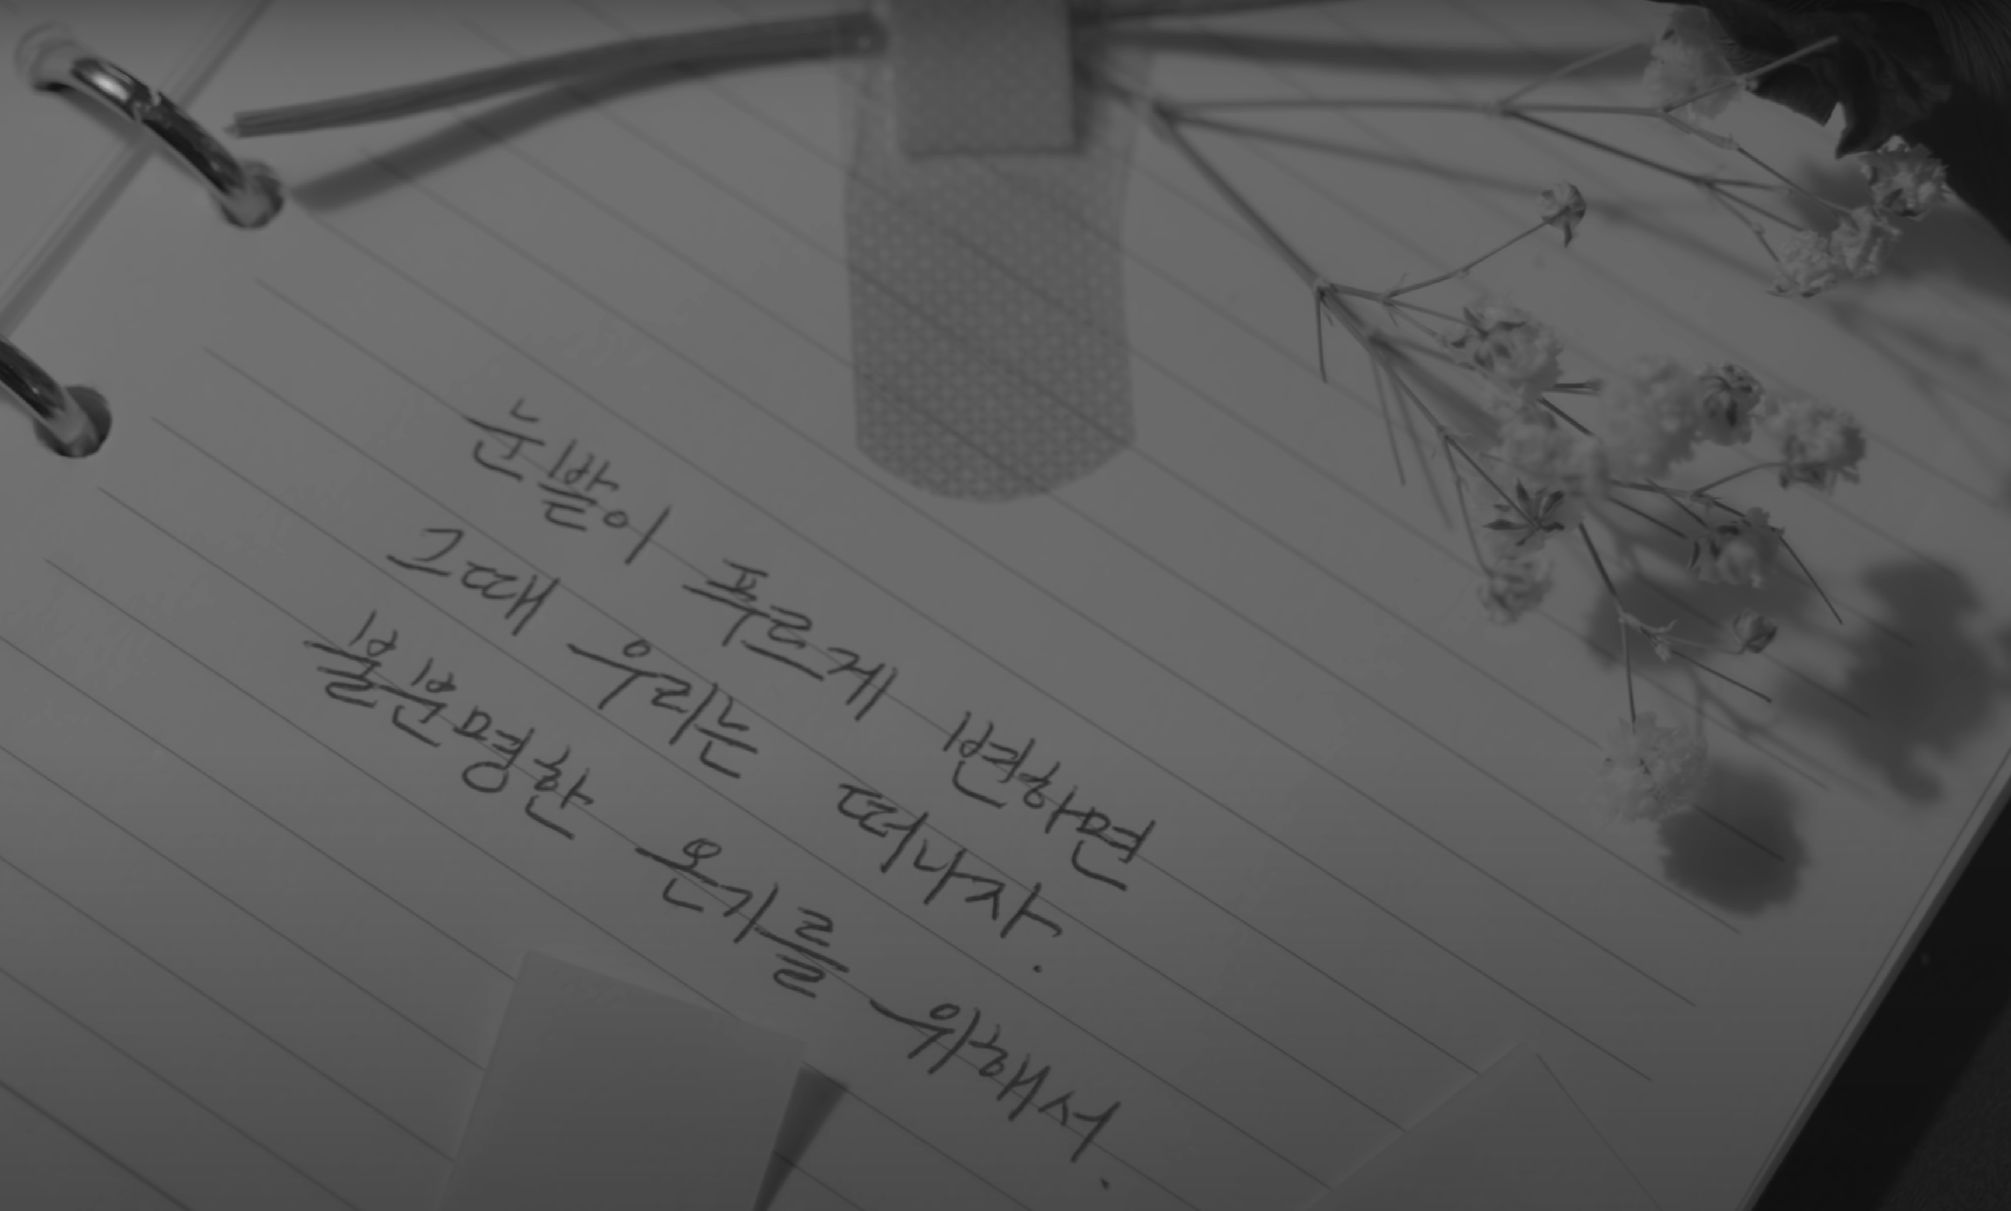 눈밭이 푸르게 변하면
그때 우리는 떠나자.
불분명한 온기를 위해서.